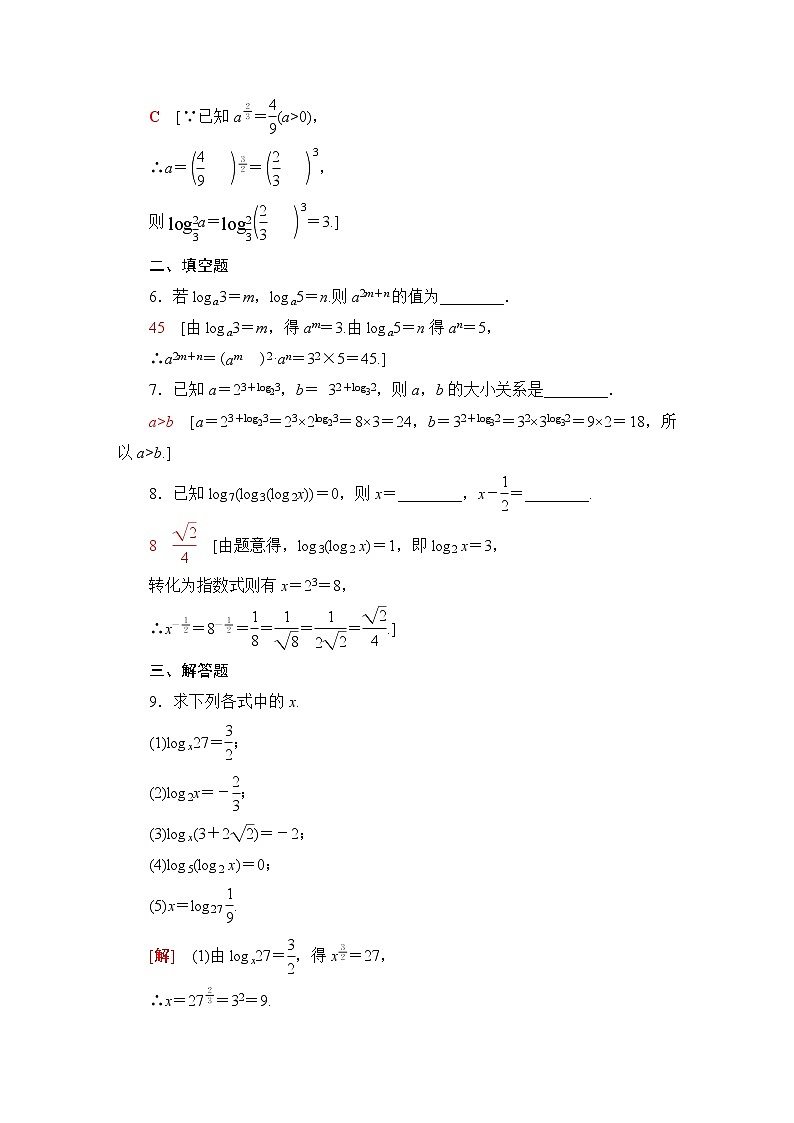 C [∵已知 a^{2/3}=4/9(a>0),
∴a=(4/9)^{3/2}=(2/3)^3,
则 log_{2/3}a=log_{2/3}(2/3)^3=3.]
二、填空题
6．若 log_a3=m，log_a5=n.则 a^{2m+n}的值为________．
45 [由 log_a3=m，得 a^m=3.由 log_a5=n 得 a^n=5，
∴a^{2m+n}=(a^m)^2·a^n=3^2×5=45.]
7．已知 a=2^{3+log_23}，b= 3^{2+log_32}，则 a，b 的大小关系是________．
a>b [a=2^{3+log_23}=2^3×2^{log_23}=8×3=24，b=3^{2+log_32}=3^2×3^{log_32}=9×2=18，所
以 a>b.]
8．已知 log_7(log_3(log_2x))=0，则 x=________，x-1/2=________.
8 √2/4 [由题意得，log_3(log_2 x)=1，即 log_2 x=3，
转化为指数式则有 x=2^3=8，
∴x^{-1/2}=8^{-1/2}=1/8=1/√8=1/(2√2)=√2/4.]
三、解答题
9．求下列各式中的 x.
(1)log_x27=3/2;
(2)log_2x=-2/3;
(3)log_x(3+2√2)=-2;
(4)log_5(log_2 x)=0;
(5)x=log_{27}1/9.
[解] (1)由 log_x27=3/2，得 x^{3/2}=27，
∴x=27^{2/3}=3^2=9.